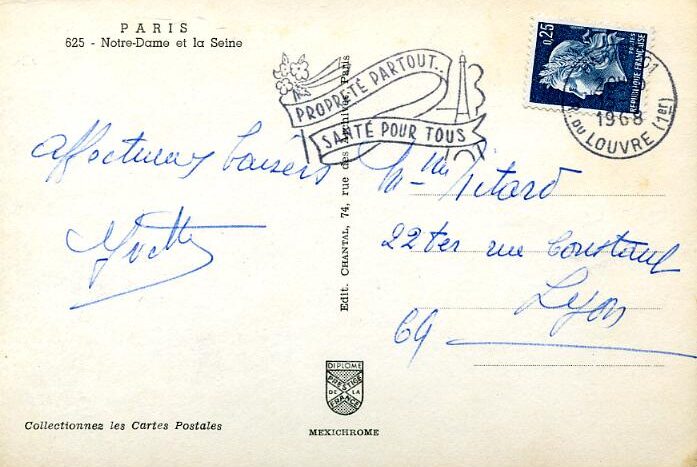 PARIS
625 - Notre-Dame et la Seine
PROPRETÉ PARTOUT...
SANTÉ POUR TOUS
0,25
POSTES
REPUBLIQUE FRANÇAISE
1968
DU LOUVRE (1er)
Affectueux baisers
Yvette
Mlle
22ter rue Constant
Lyon
69
Edit. CHANTAL, 74, rue des Archives, Paris
DIPLOME
PRESTIGE
DE LA
FRANCE
MEXICHROME
Collectionnez les Cartes Postales